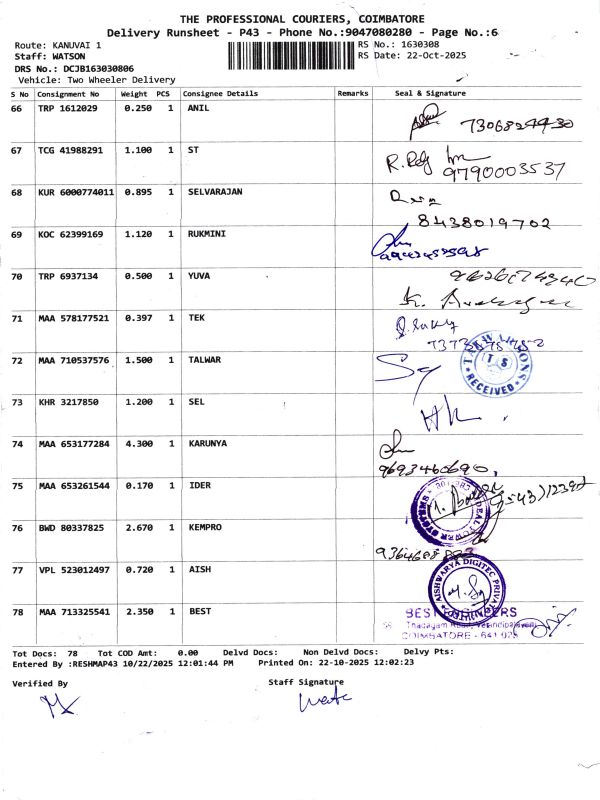 THE PROFESSIONAL COURIERS, COIMBATORE
Delivery Runsheet - P43 - Phone No.:9047080280 - Page No.:6
Route: KANUVAI 1
RS No.: 1630308
Staff: WATSON
RS Date: 22-Oct-2025
DRS No.: DCJB163030806
Vehicle: Two Wheeler Delivery
S No Consignment No Weight PCS Consignee Details Remarks Seal & Signature
66 TRP 1612029 0.250 1 ANIL
67 TCG 41988291 1.100 1 ST
9790003537
68 KUR 6000774011 0.895 1 SELVARAJAN
8438019702
69 KOC 62399169 1.120 1 RUKMINI
70 TRP 6937134 0.500 1 YUVA
71 MAA 578177521 0.397 1 TEK
72 MAA 710537576 1.500 1 TALWAR
T S
RECEIVED
73 KHR 3217850 1.200 1 SEL
74 MAA 653177284 4.300 1 KARUNYA
9693460690,
75 MAA 653261544 0.170 1 IDER
76 BWD 80337825 2.670 1 KEMPRO
77 VPL 523012497 0.720 1 AISH
AISHWARYA DIGITEC PRIVATE LIMITED
78 MAA 713325541 2.350 1 BEST
BEST
COIMBATORE - 641 025
Tot Docs: 78 Tot COD Amt: 0.00 Delvd Docs: Non Delvd Docs: Delvy Pts:
Entered By :RESHMAP43 10/22/2025 12:01:44 PM Printed On: 22-10-2025 12:02:23
Verified By
Staff Signature